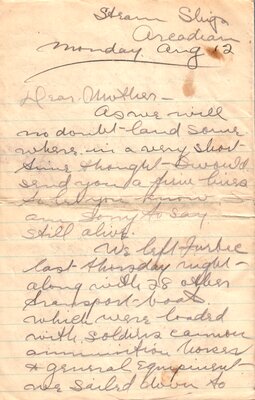 Steam Ship
Arcadian
Monday. Aug 12
Dear Mother -
As we will
no doubt land some
where in a very short
time thought I would
send you a few lines
to let you know
am sorry to say
still alive.
We left
last thursday night -
along with 28 other
transport - boats.
which were loaded
with soldiers cannon
ammunition horses
& general equipment -
we sailed down to